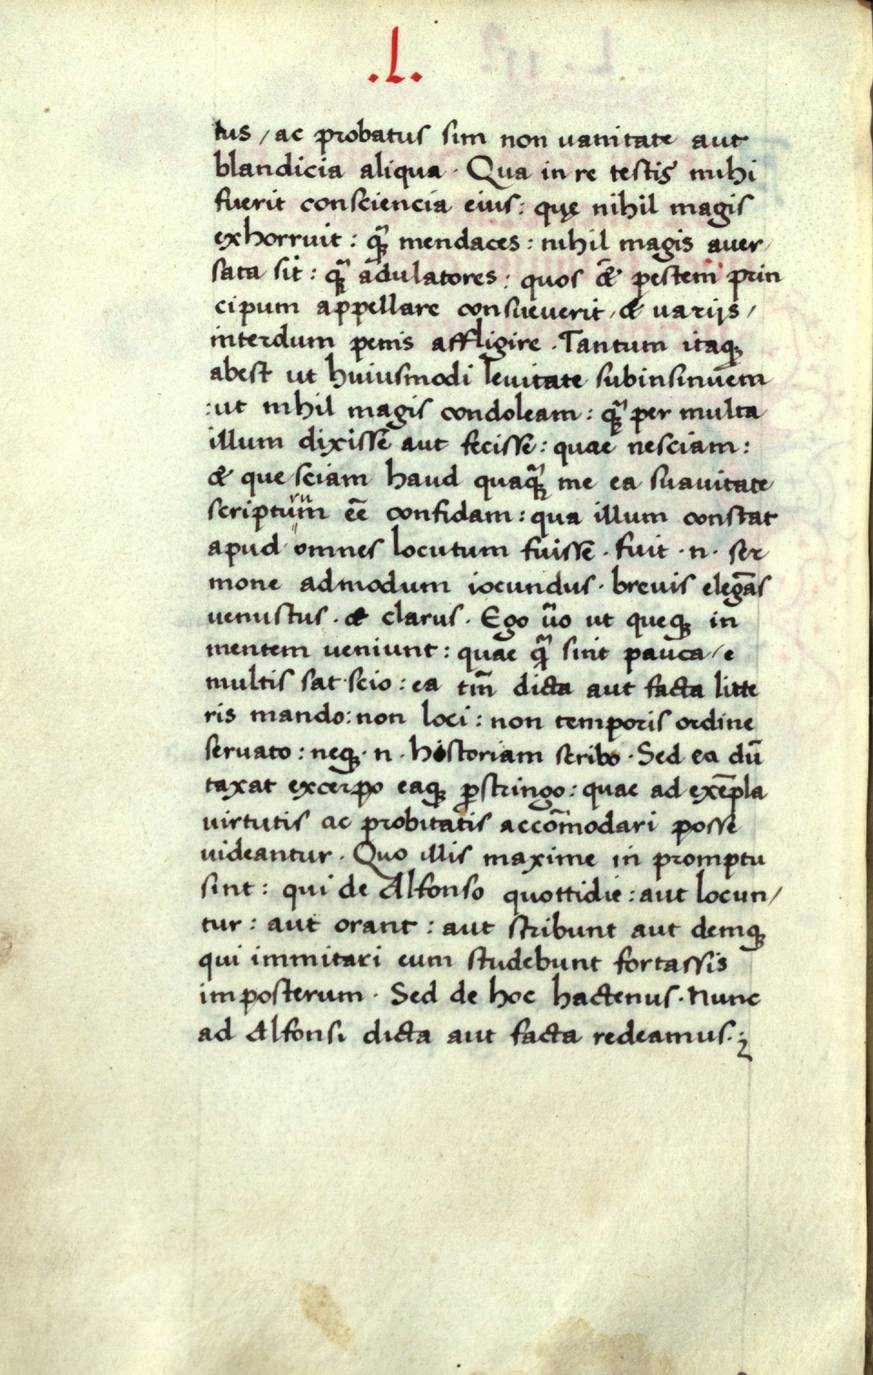 .L.
tus / ac probatus sim non uanitate aut
blandicia aliqua · Qua in re testis mihi
fuerit consciencia eius: quę nihil magis
exhorruit: q̃ȝ mendaces: nihil magis auer
sata sit: q̃ȝ adulatores: quos & pestem prin
cipum appellare consueuerit / & uarijs /
interdum penis affligire · Tantum itaqȝ
abest ut huiusmodi leuitate subinsinuem
:ut nihil magis condoleam: q̃ȝ per multa
illum dixisse aut fecisse: quae nesciam:
& que sciam haud quaq̃ȝ me ea suauitate
scripturũm eẽ confidam: qua illum constat
apud omnes locutum fuisse · fuit · n · ser
mone admodum iocundus · breuis elegãs
uenustus · & clarus · Ego ũo ut queqȝ in
mentem ueniunt: quae q̃ȝ sint pauca / e
multis sat scio: ea tm̃ dicta aut facta litte
ris mando: non loci: non temporis ordine
seruato: neqȝ · n · historiam scribo · Sed ea dũ
taxat excerpo eaqȝ ꝑstringo: quae ad exẽpla
virtutis ac probitatis accom̃odari posse
uideantur · Quo illis maxime in promptu
sint: qui de Alfonso quottidie: aut locun/
tur: aut orant: aut scribunt aut demqȝ
qui immitari eum studebunt fortassis
imposterum · Sed de hoc hactenus · Nunc
ad Alfonsi dicta aut facta redeamus·;